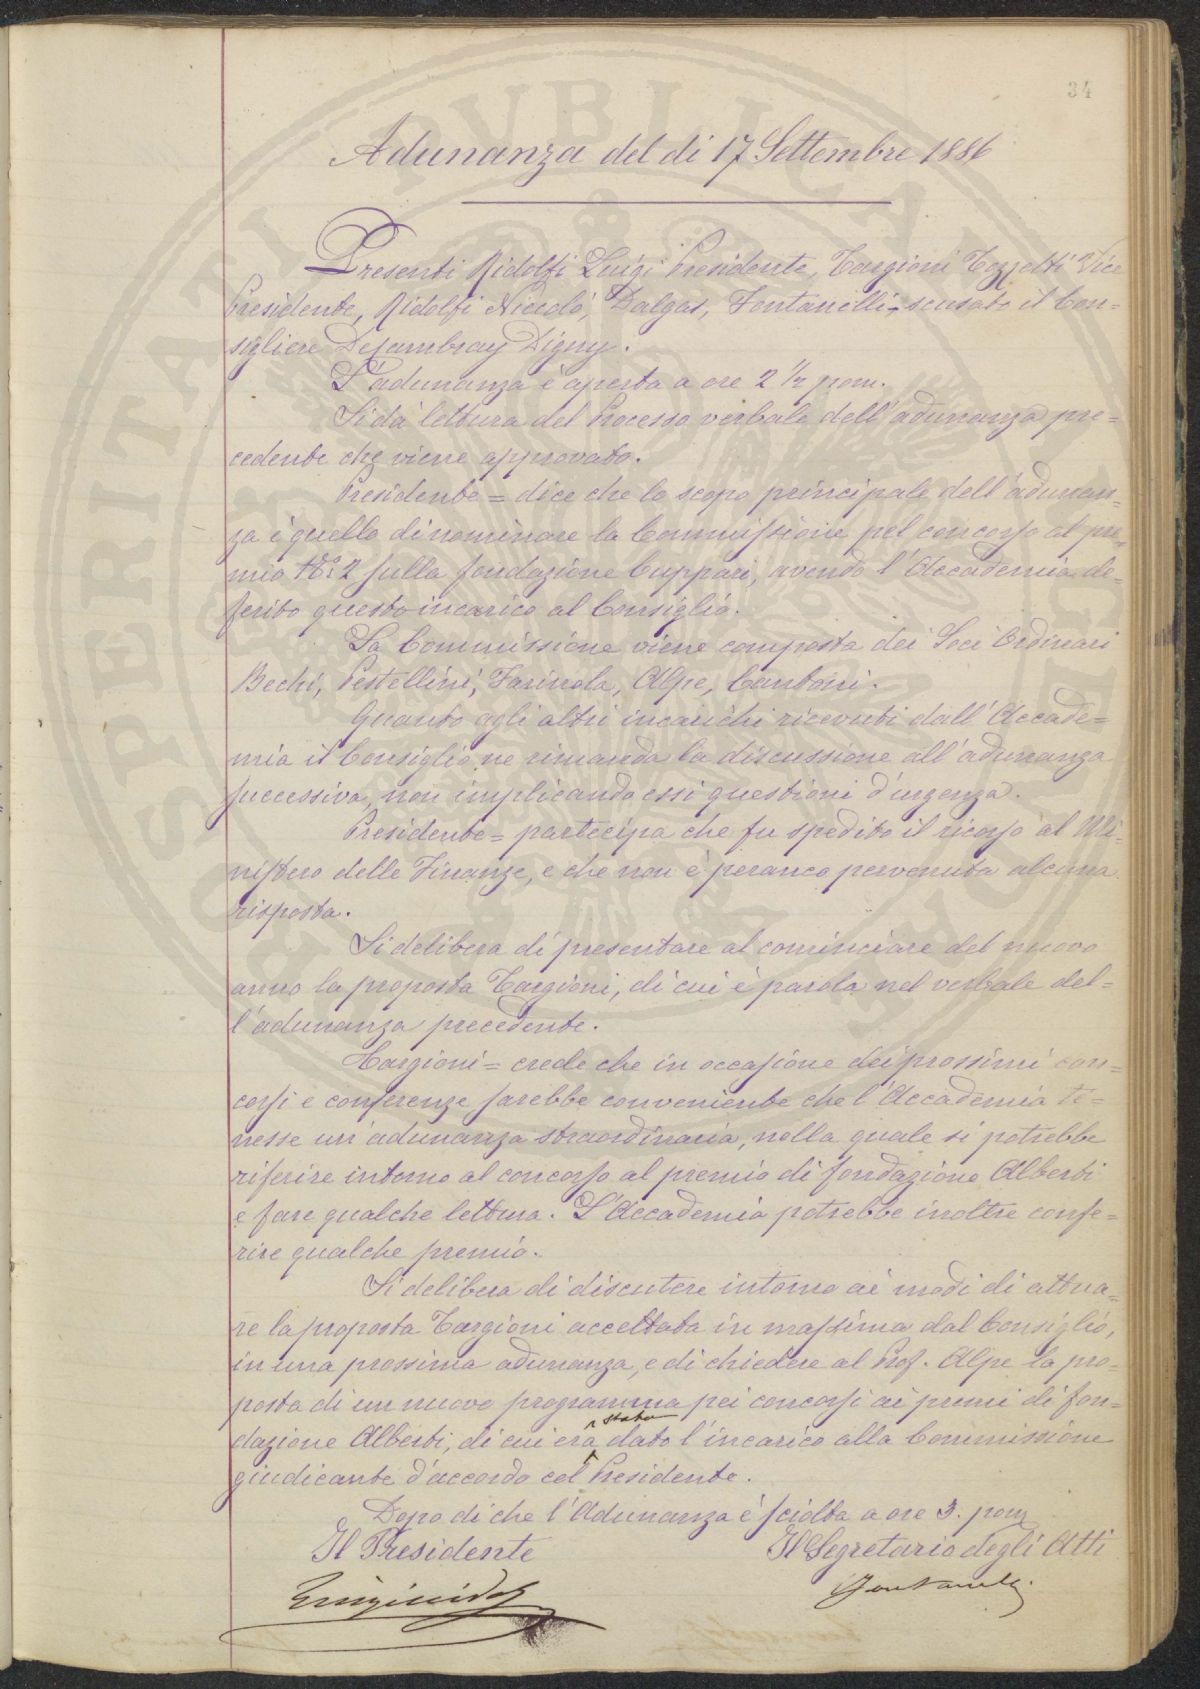 34
Adunanza del di 17 Settembre 1886
Presenti Ridolfi Luigi Presidente, Targioni Tozzetti Vice
Presidente, Ridolfi Niccolò, Dalgas, Fontanelli, scusato il Con=
sigliere Dejambray Digny.
L'adunanza è aperta a ore 2 1/2 pom.
Si dà lettura del Processo verbale dell'adunanza pre=
cedente che viene approvato.
Presidente = dice che lo scopo principale dell'adunan=
za è quello di nominare la Commissione pel concorso al pre=
mio N.º 2 sulla fondazione Cuppari, avendo l'Accademia de=
ferito questo incarico al Consiglio.
La Commissione viene composta dei Soci Ordinari
Bechi, Pestellini, Farinola, Alpe, Cantoni.
Quanto agli altri incarichi ricevuti dall'Accade=
mia il Consiglio ne rimanda la discussione all'adunanza
successiva, non implicando essi questioni d'urgenza.
Presidente = partecipa che fu spedito il ricorso al Mi=
nistero delle Finanze, e che non è peranco pervenuta alcuna
risposta.
Si delibera di presentare al cominciare del nuovo
anno la proposta Targioni, di cui è parola nel verbale del=
l'adunanza precedente.
Targioni = crede che in occasione dei prossimi con=
corsi e conferenze sarebbe conveniente che l'Accademia te=
nesse un'adunanza straordinaria, nella quale si potrebbe
riferire intorno al concorso al premio di fondazione Alberti
e fare qualche lettura. L'Accademia potrebbe inoltre confe=
rire qualche premio.
Si delibera di discutere intorno ai modi di attua=
re la proposta Targioni accettata in massima dal Consiglio,
in una prossima adunanza, e di chiedere al Prof. Alpe la pro=
posta di un nuovo programma pei concorsi ai premi di fon=
dazione Alberti, di cui era stato dato l'incarico alla Commissione
giudicante d'accordo col Presidente.
Dopo di che l'Adunanza è sciolta a ore 3. pom
Il Presidente Il Segretario degli Atti
Luigi Ridolfi Fontanelli
SPERITATI PVBLICAE